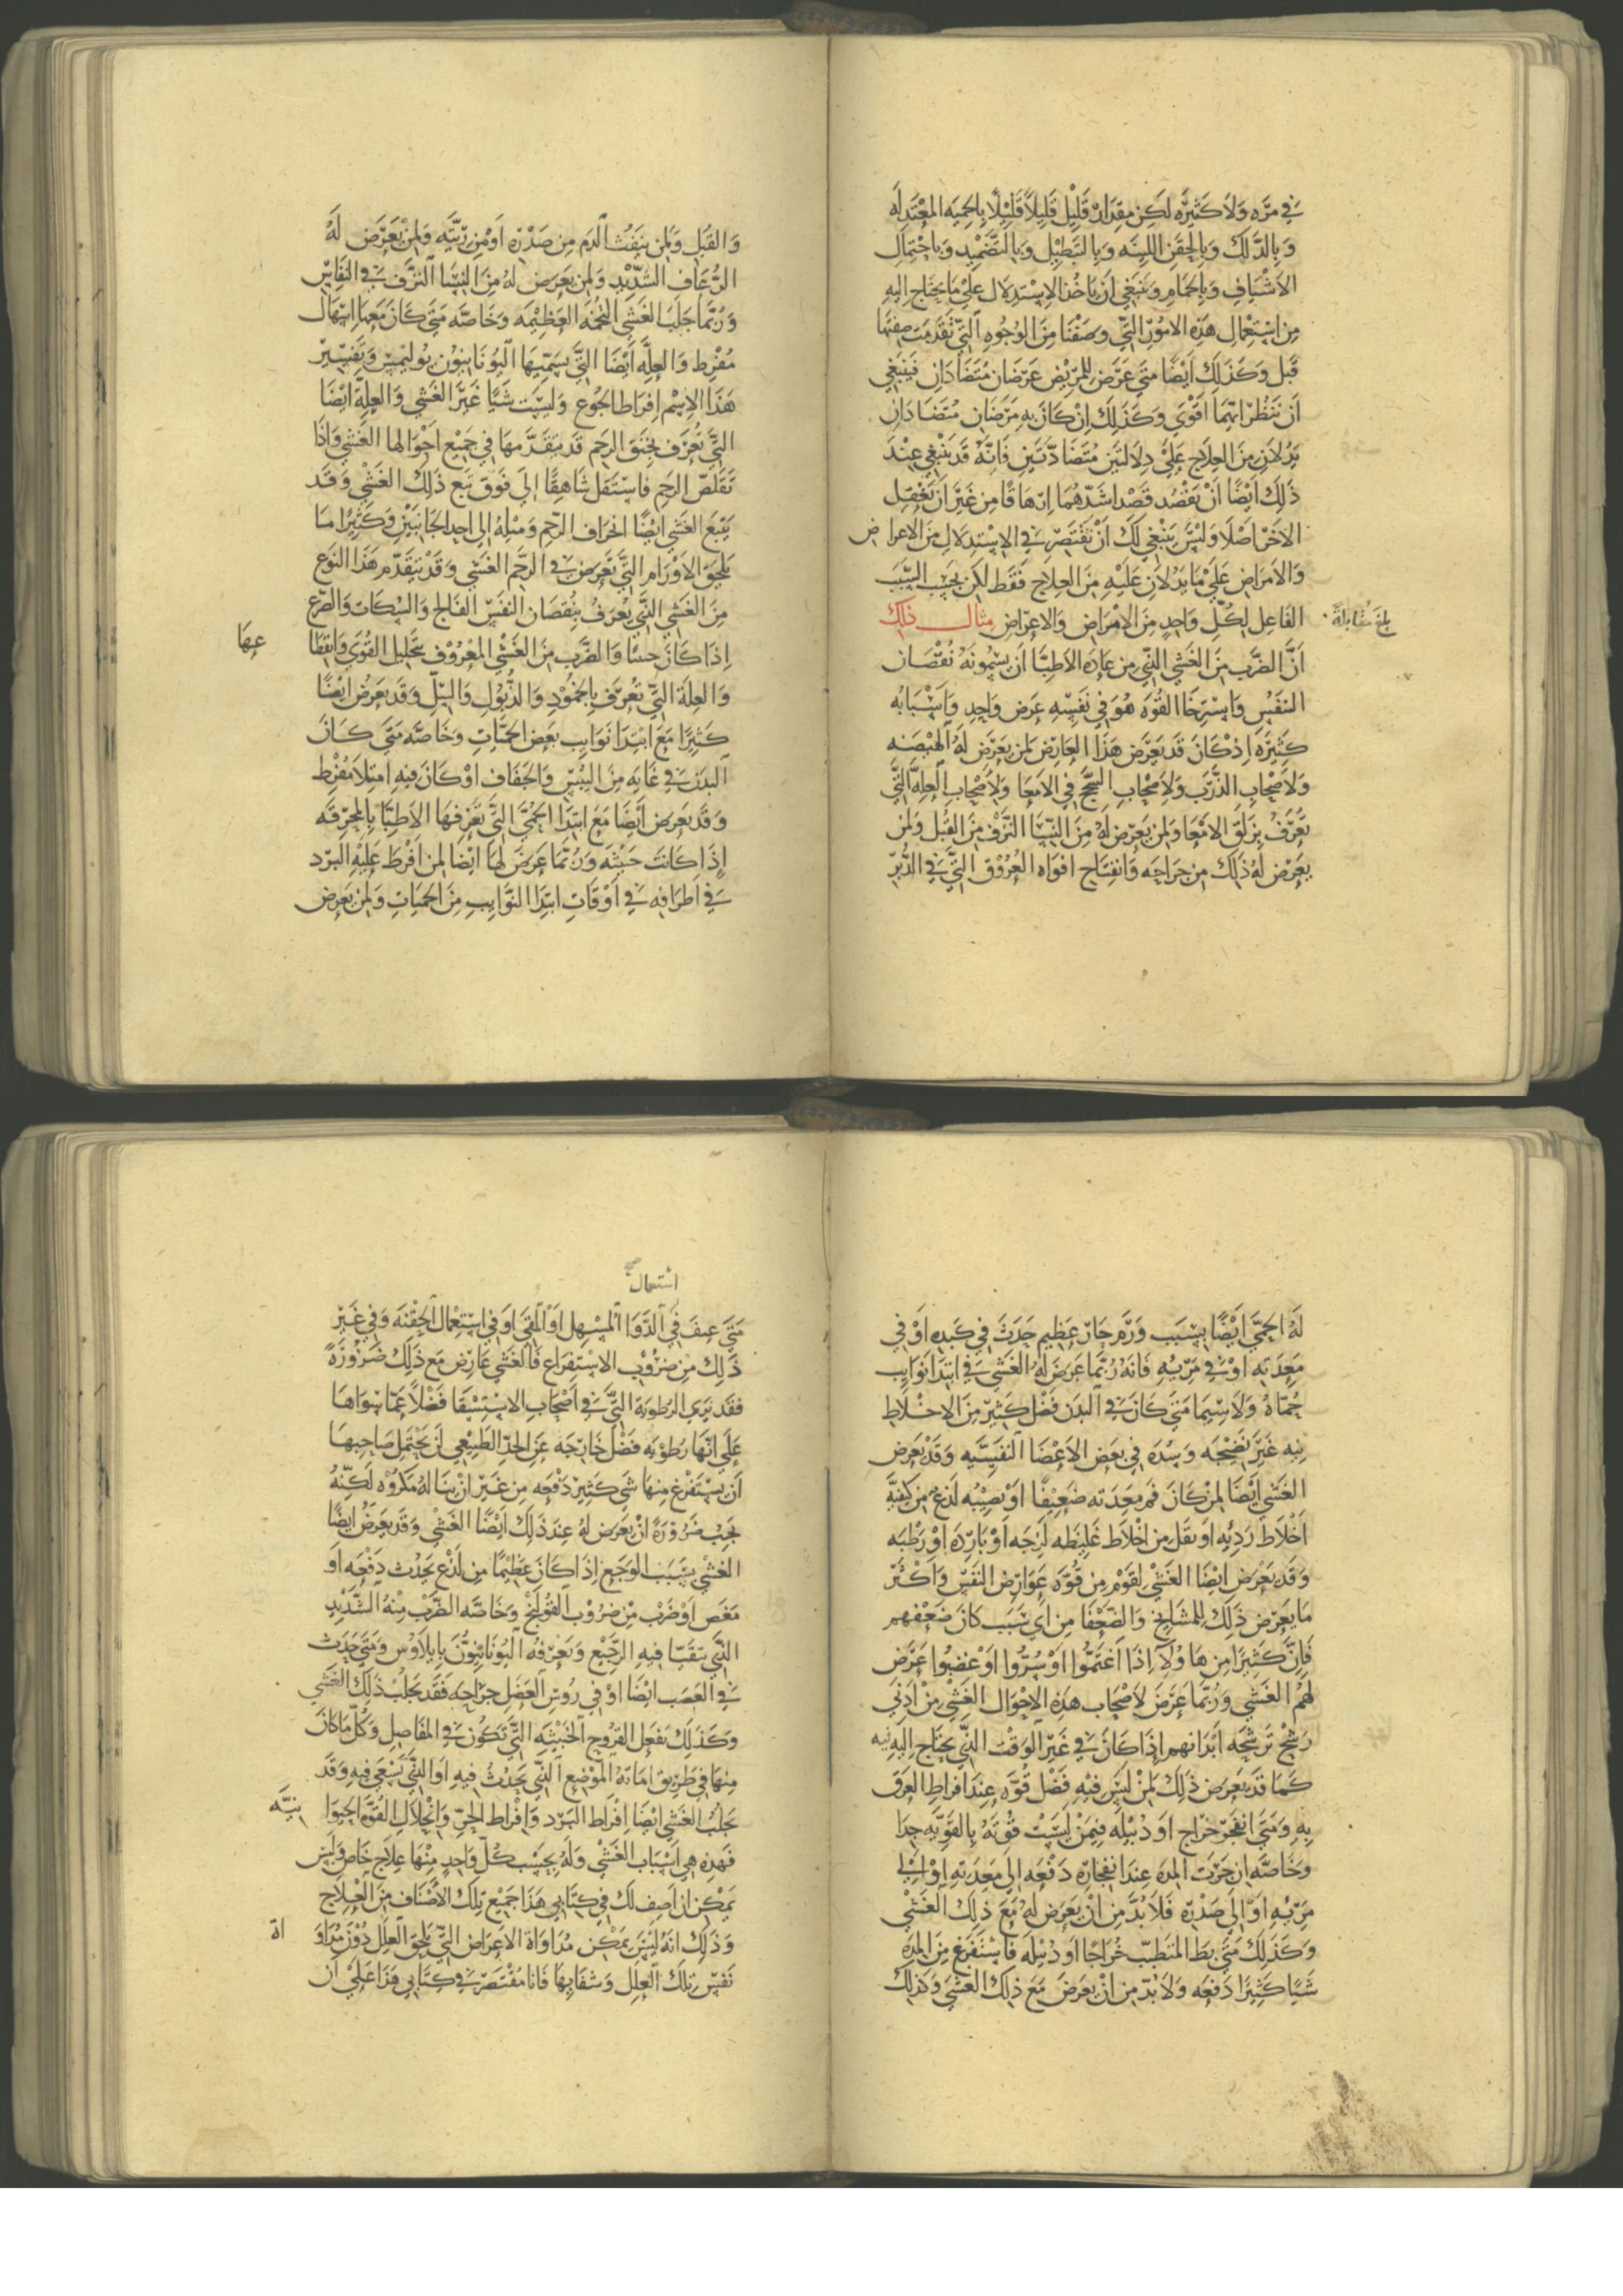 في مره ولا كثيره لكن مقدار قليل قليلا قليلا بالحميه المعتدله
وبالدلك وبالحقن اللينه وبالتنطيل وبالتضميد وباحتمال
الاشياف وبالحمام وينبغي ان ياخذ الاستدلال علي ما يحتاج اليه
من استعمال هذه الامور التي وصفنا من الوجوه التي تقدمت صفتها
قبل وكذلك ايضا متي عرض للمريض عرضان متضادان فينبغي
ان تنظر ايهما اقوي وكذلك ان كان به مرضان متضادان
يدلان من العلاج علي دلالتين متضادتين فانه قد ينبغي عند
ذلك ايضا ان تقصد قصد اشدهما ارهاقا من غير ان تغفل
الاخر اصلا وليس ينبغي لك ان تقتصر في الاستدلال من الاعراض
والامراض علي ما يدلان عليه من العلاج فقط لكن بحسب السبب
الفاعل لكل واحد من الامراض والاعراض مثال ذلك
بلغ مقابلة
ان الضرب من الغشي الذي من عادة الاطبا ان يسمونه نقصان
النفس واسترخا القوه هو في نفسه عرض واحد واسبابه
كثيره اذ كان قد يعرض هذا العارض لمن يعرض له الهيضه
ولاصحاب الذرب ولاصحاب السحج في الامعا ولاصحاب العله التي
تعرف بزلق الامعا ولمن يعرض له من النسا النزف من القبل ولمن
يعرض له ذلك من جراحه وانفتاح افواه العروق التي في الدبر
والقبل ولمن ينفث الدم من صدره او من ريته ولمن يعرض له
الرعاف الشديد ولمن يعرض له من النسا النزف في النفاس
وربما جلب الغشي التخمه العظيمه وخاصه متي كان معها اسهال
مفرط والعله ايضا التي يسميها اليونانيون بوليميس وتفسير
هذا الاسم افراط الجوع وليست شيا غير الغشي والعلة ايضا
التي تعرف بخنق الرحم قد يتقدمها في جميع احوالها الغشي واذا
تقلص الرحم فاستقل شاهقا الي فوق تبع ذلك الغشي وقد
يتبع الغشي ايضا انحراف الرحم وميله الي احد الجانبين وكثيرا ما
يلحق الاورام التي تعرض في الرحم الغشي وقد يتقدم هذا النوع
من الغشي الذي يعرف بنقصان النفس الفالج والسكات والصرع
اذا كان حسا والضرب من الغشي المعروف بتحليل القوي وانقطا
عها
والعلة التي تعرف بالجمود والذبول والسل وقد يعرض ايضا
كثيرا مع ابتدا نوايب بعض الحميات وخاصه متي كان
البدن في غايه من اليبس والجفاف او كان فيه امتلا مفرط
وقد يعرض ايضا مع ابتدا الحمي التي تعرفها الاطبا بالمحرقه
اذا كانت خبيثه وربما عرض لها ايضا لمن افرط عليه البرد
في اطرافه في اوقات ابتدا النوايب من الحميات ولمن يعرض
له الحمي ايضا بسبب ورم حار عظيم حدث في كبده او في
معدته او في مريه فانه ربما عرض له الغشي في ابتدا نوايب
حماه ولا سيما متي كان في البدن فضل كثير من الاخلاط
نيه غير نضيجه وسده في بعض الاعضا النفيسيه وقد يعرض
الغشي ايضا لمن كان فم معدته ضعيفا او يصيبه لذع من كيفية
اخلاط رديه او ثقل من اخلاط غليظه لزجه او بارده او رطبه
وقد يعرض ايضا الغشي لقوم من قوه عوارض النفس واكثر
ما يعرض ذلك للمشايخ والضعفا من اي سبب كان ضعفهم
فان كثيرا من هاولا اذا اغتموا او سروا او غضبوا عرض
لهم الغشي وربما عرض لاصحاب هذه الاحوال الغشي من ادني
رشح ترشحه ابدانهم اذا كان في غير الوقت الذي يحتاج اليه فيه
كما قد يعرض ذلك لمن ليس فيه فضل قوه عند افراط العرق
به ومتي انفجر خراج او دبيله فيمن ليست قوته بالقويه جدا
وخاصه ان جرت المده عند انفجاره دفعه الي معدته او الي
مريه او الي صدره فلا بد من ان يعرض له مع ذلك الغشي
وكذلك متي بط المتطبب خراجا او دبيله فاستفرغ من المده
شيا كثيرا دفعه ولا بد من ان يعرض مع ذلك الغشي وكذلك
استعمال
صح
متي عنف في الدوا المسهل او المقي او في استعمال الحقنه وفي غير
ذلك من ضروب الاستفراغ فالغشي عارض مع ذلك ضرورة
فقد تري الرطوبة التي في اصحاب الاستسقا فضلا عما سواها
علي انها رطوبه فضل خارجه عن الحد الطبيعي لن يحتمل صاحبها
ان يستفرغ منها شي كثير دفعه من غير ان يناله مكروه لكنه
يجب ضرورة ان يعرض له عند ذلك ايضا الغشي وقد يعرض ايضا
الغشي بسبب الوجع اذا كان عظيما من لذع يحدث دفعه او
مغص او ضرب من ضروب القولنج وخاصه الضرب منه الشديد
الذي يتقيا فيه الرجيع ويعرفه اليونانيون بايلاوس ومتي حدث
في العصب ايضا او في روس العضل جراحه فقد يجلب ذلك الغشي
وكذلك تفعل القروح الخبيثه التي تكون في المفاصل وكل ما كان
منها في طريق اماتة الموضع الذي يحدث فيه او الذي يسعي فيه وقد
يجلب الغشي ايضا افراط البرد وافراط الحر وانحلال القوة الحيوا
نيه
فهذه هي اسباب الغشي وله بحسب كل واحد منها علاج خاص وليس
يمكن ان اصف لك في كتابي هذا جميع تلك الاصناف من العلاج
وذلك انه ليس يمكن مداواة الاعراض التي يلحق العلل دون مداو
اة
نفس تلك العلل وشفايها فانا مقتصر في كتابي هذا علي ان